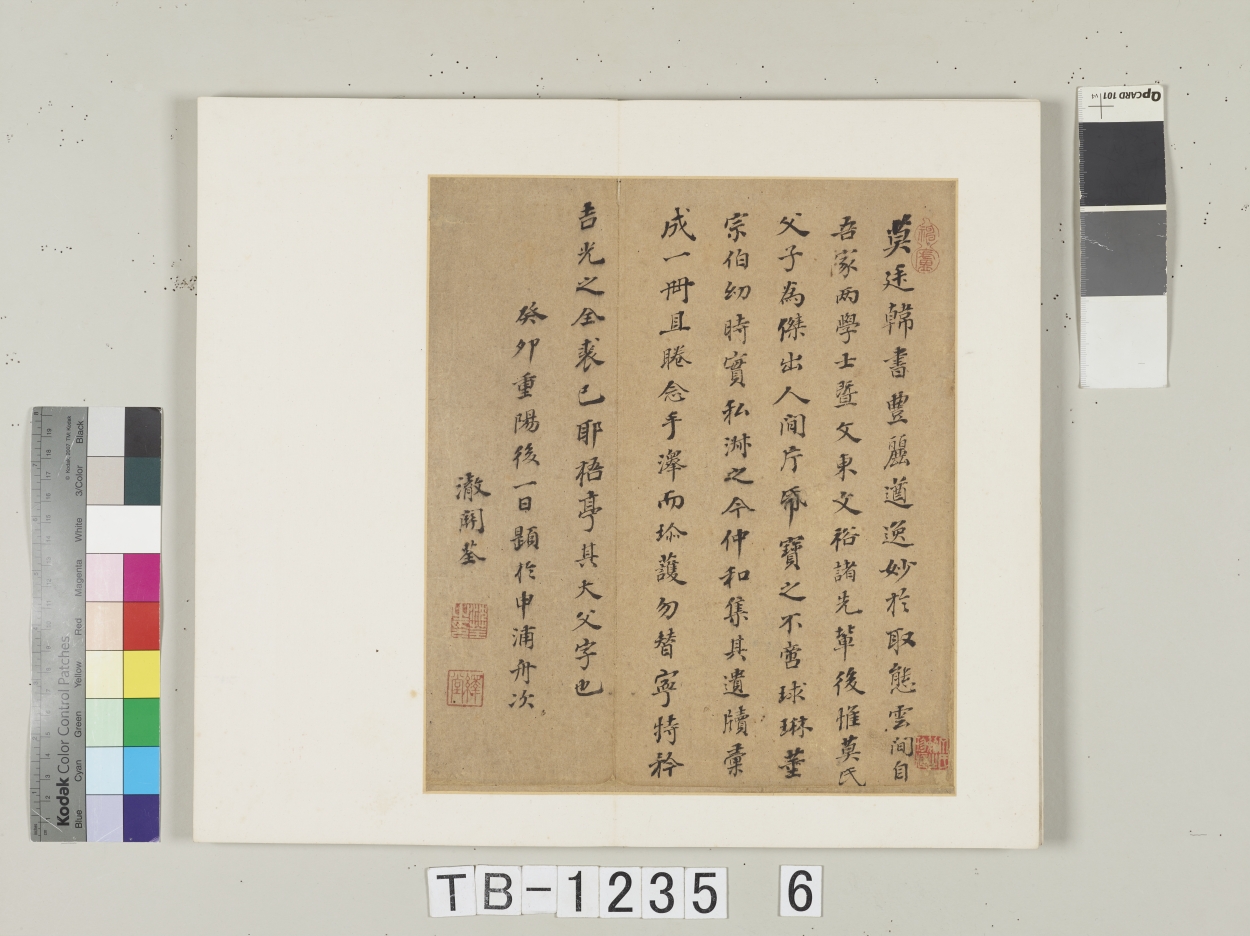 莫廷韓書豊麗遒逸妙於取態雲間自
吾家两學士暨文東文裕諸先軰後惟莫氏
父子為傑出人間片帋寶之不啻球琳董
宗伯幼時實私淑之今仲和集其遺牘彙
成一冊且睠念手澤而珎護勿替寧特矜
吉光之全裘已耶梧亭其大父字也
癸卯重陽後一日題於申浦舟次
澂関荃
QPCARD 101 v4
Kodak Color Control Patches
© Kodak, 2007 TM: Kodak
Blue Cyan Green Yellow Red Magenta White 3/Color Black
TB-1235 6